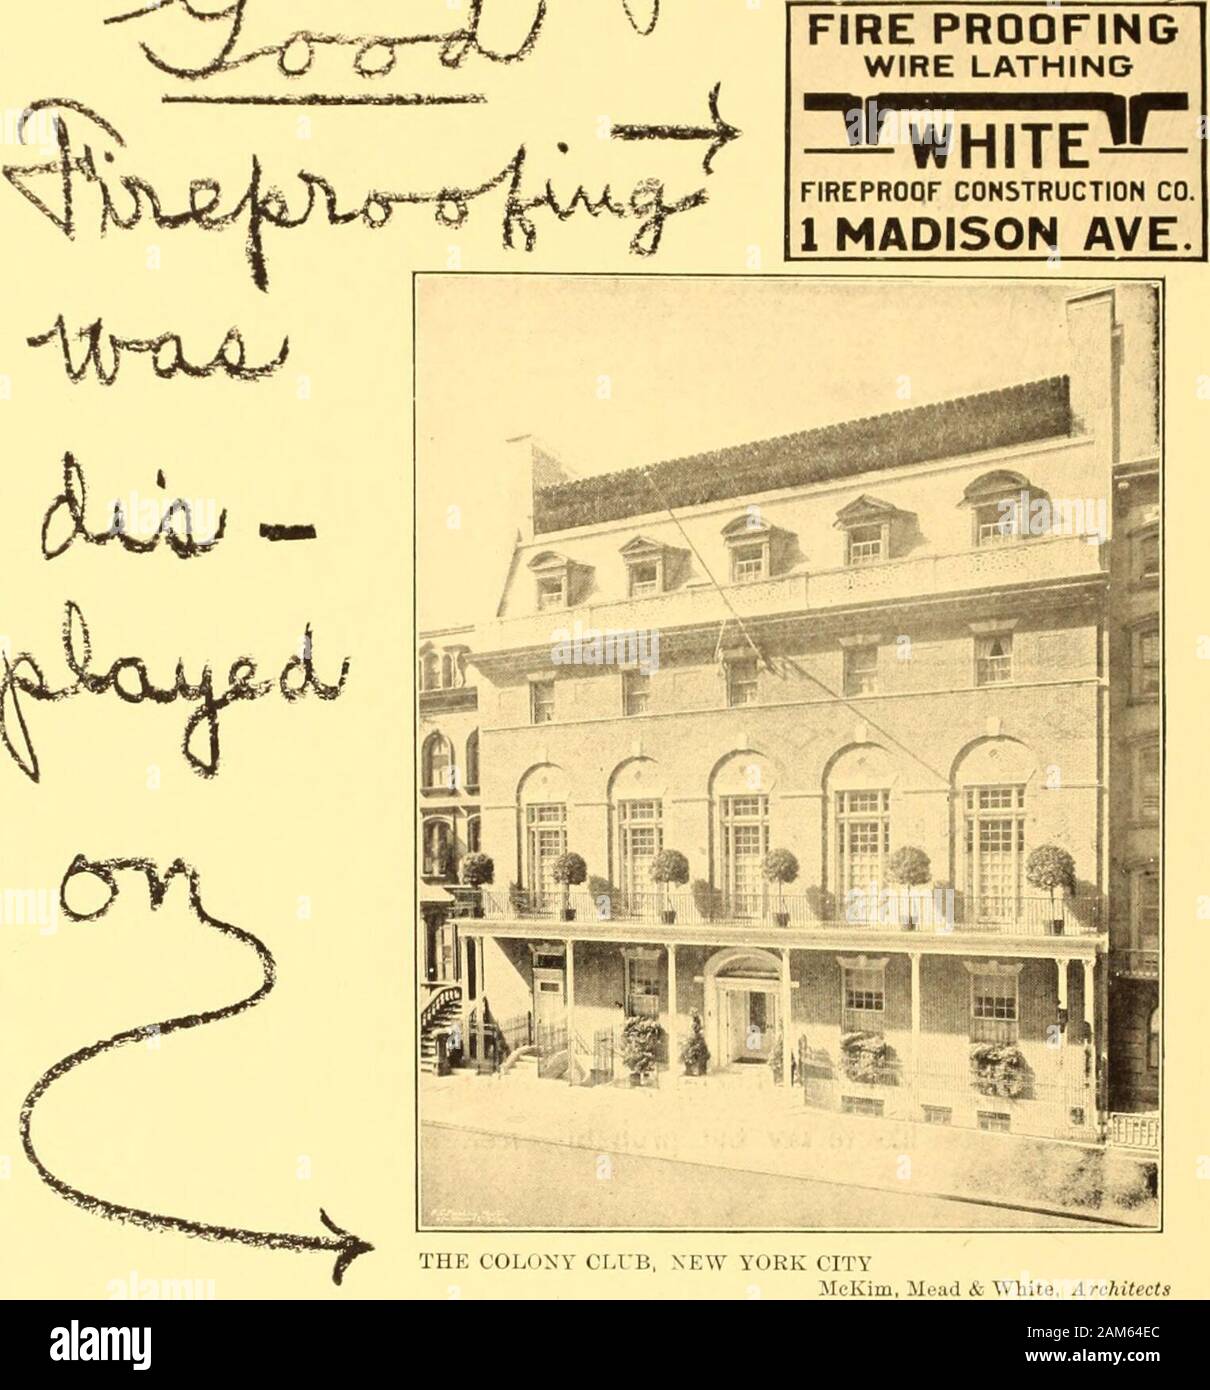 Good
Fireproofing
was
dis-
played
on
FIRE PROOFING
WIRE LATHING
WHITE
FIREPROOF CONSTRUCTION CO.
1 MADISON AVE.
THE COLONY CLUB, NEW YORK CITY
McKim, Mead & White, Architects
alamy
Image ID: 2AM64EC
www.alamy.com